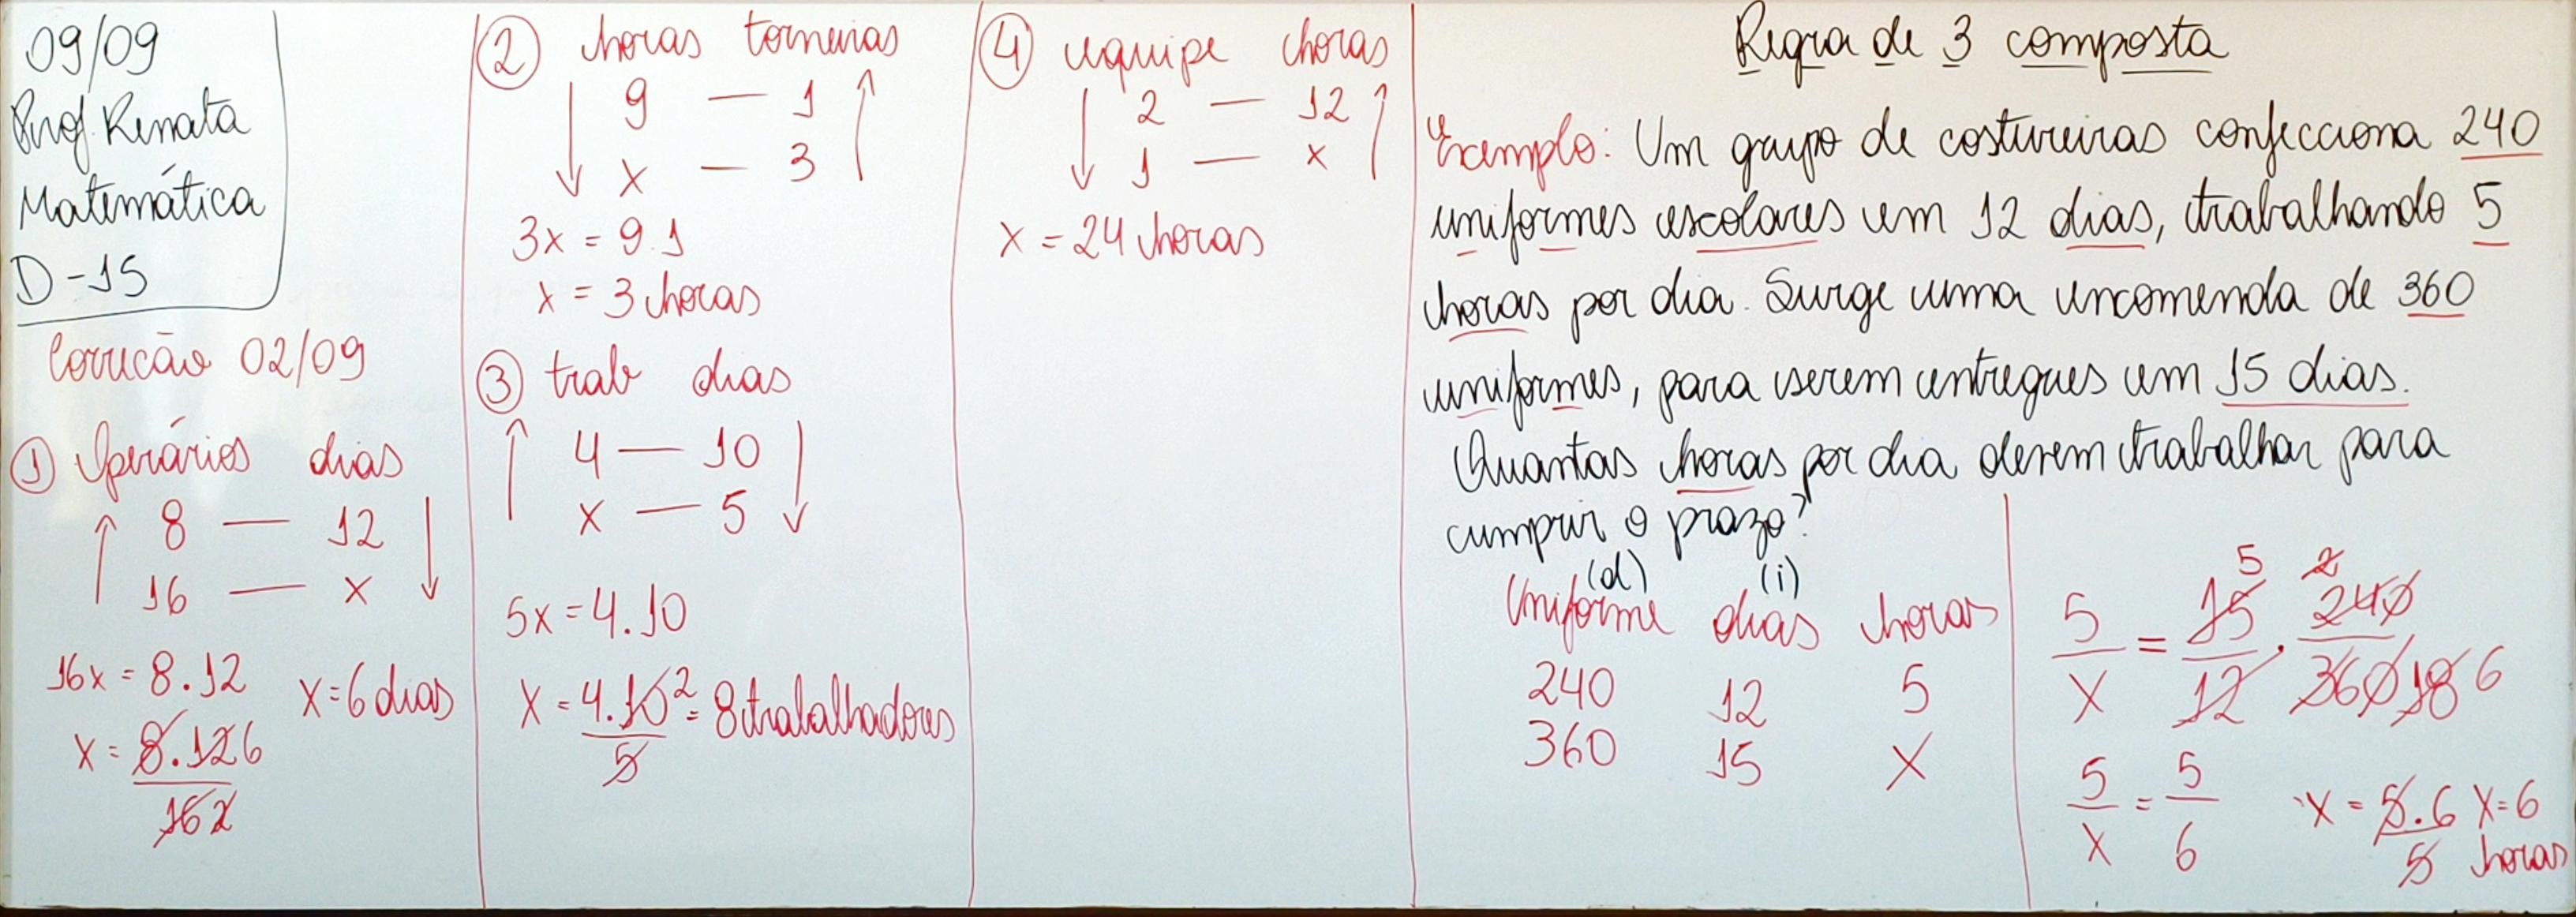 09/09
Prof Renata
Matemática
D-15
Correcão 02/09
① Operários dias
8 — 12
16 — x
16x = 8.12
x = 8.12 6
16 2
x = 6 dias
② horas torneiras
9 — 1
x — 3
3x = 9.1
x = 3 horas
③ trab dias
4 — 10
x — 5
5x = 4.10
x = 4.10 2 = 8 trabalhadores
5
④ equipe horas
2 — 12
1 — x
x = 24 horas
Regra de 3 composta
Exemplo: Um grupo de costureiras confecciona 240
uniformes escolares em 12 dias, trabalhando 5
horas por dia. Surge uma encomenda de 360
uniformes, para serem entregues em 15 dias.
Quantas horas por dia devem trabalhar para
cumprir o prazo?
(d) (i)
Uniforme dias horas
240 12 5
360 15 x
5 2
5 = 15 . 240
x 12 360 18 6
5 = 5
x 6
x = 5.6 x = 6
5 horas